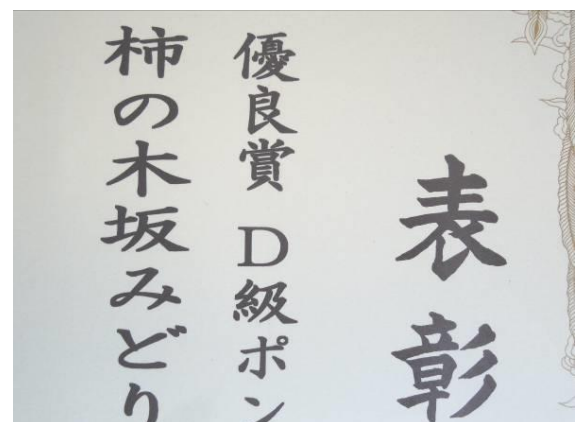 表彰
優良賞 D級ポン
柿の木坂みどり